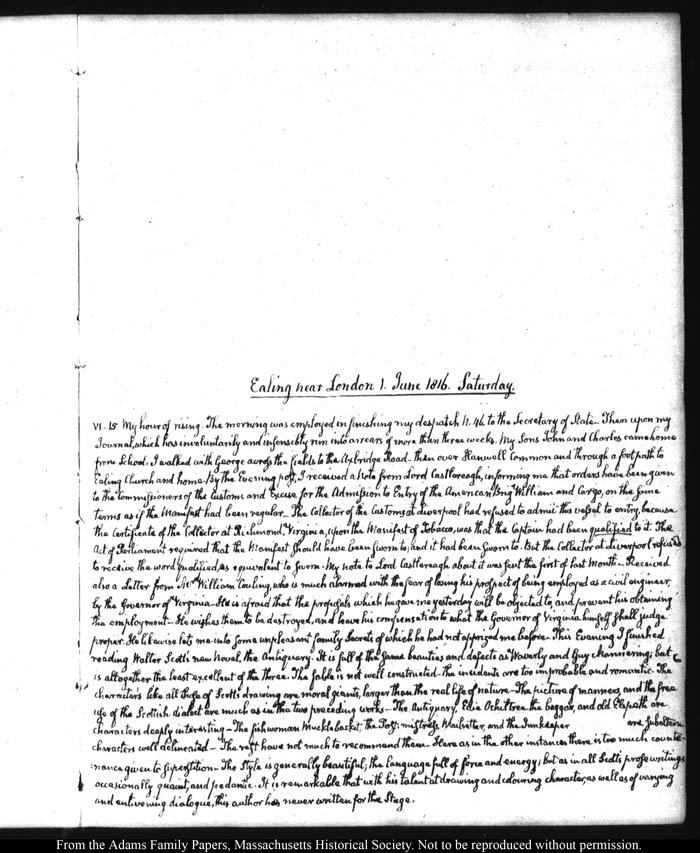 Ealing near London 1. June 1816. Saturday.
VI. 15 My hour of rising. The morning was employed in finishing my despatch N. 46 to the Secretary of State. Then upon my
Journal, which has involuntarily and insensibly run into arrears of more than three weeks. My Sons John and Charles came home
from School. I walked with George across the fields to the Uxbridge Road. then over Hanwell Common and through a footpath to
Ealing Church and home. By the Evening post, I received a Note from Lord Castlereagh, informing me that orders have been given
to the Commissioners of the Customs and Excise for the Admission to Entry of the American Brig William and Cargo, on the same
terms as if the Manifest had been regular. The Collector of the Customs at Liverpool had refused to admit this vessel to entry, because
the Certificate of the Collector at Richmond, Virginia, upon the Manifest of Tobacco, was that the Captain had been qualified to it. The
Act of Parliament required that the Manifest should have been sworn to; and it had been sworn to. But the Collector at Liverpool refused
to receive the word qualified, as equivalent to sworn. My note to Lord Castlereagh about it was sent the first of last Month. Received
also a Letter from Mr William Couling, who is much alarmed with the fear of losing his prospect of being employed as a civil engineer,
by the Governor of Virginia. He is afraid that the proposals which he gave me yesterday will be objected to, and prevent his obtaining
the employment. He wishes them to be destroyed, and leave his compensation to what the Governor of Virginia himself shall judge
proper. He likewise lets me into some unpleasant family secrets of which he had not apprized me before. This Evening I finished
reading Walter Scott's new Novel, the Antiquary. It is full of the same beauties and defects as Waverly and Guy Mannering; but
is altogether the least excellent of the three. The fable is not well constructed. the incidents are too improbable and romantic. The
characters like all those of Scott's drawing are moral giants, larger than the real life of nature. The picture of manners, and the free
use of the Scottish dialect are much as in the two preceding works. The Antiquary, Edie Ochiltree the beggar, and old Elspath are
characters deeply interesting. The fishwoman Mucklebacket, the Post-mistress Mailsetter, and the Innkeeper are subaltern
characters well delineated. The rest have not much to recommend them. Here as in the other instances there is too much counte-
nance given to superstition. The Style is generally beautiful; the language full of force and energy; but as in all Scott's prose writings
occasionally quaint, and pedantic. It is remarkable that with his talent at drawing and colouring character, as well as of varying
and enlivening dialogue, this author has never written for the Stage.
From the Adams Family Papers, Massachusetts Historical Society. Not to be reproduced without permission.